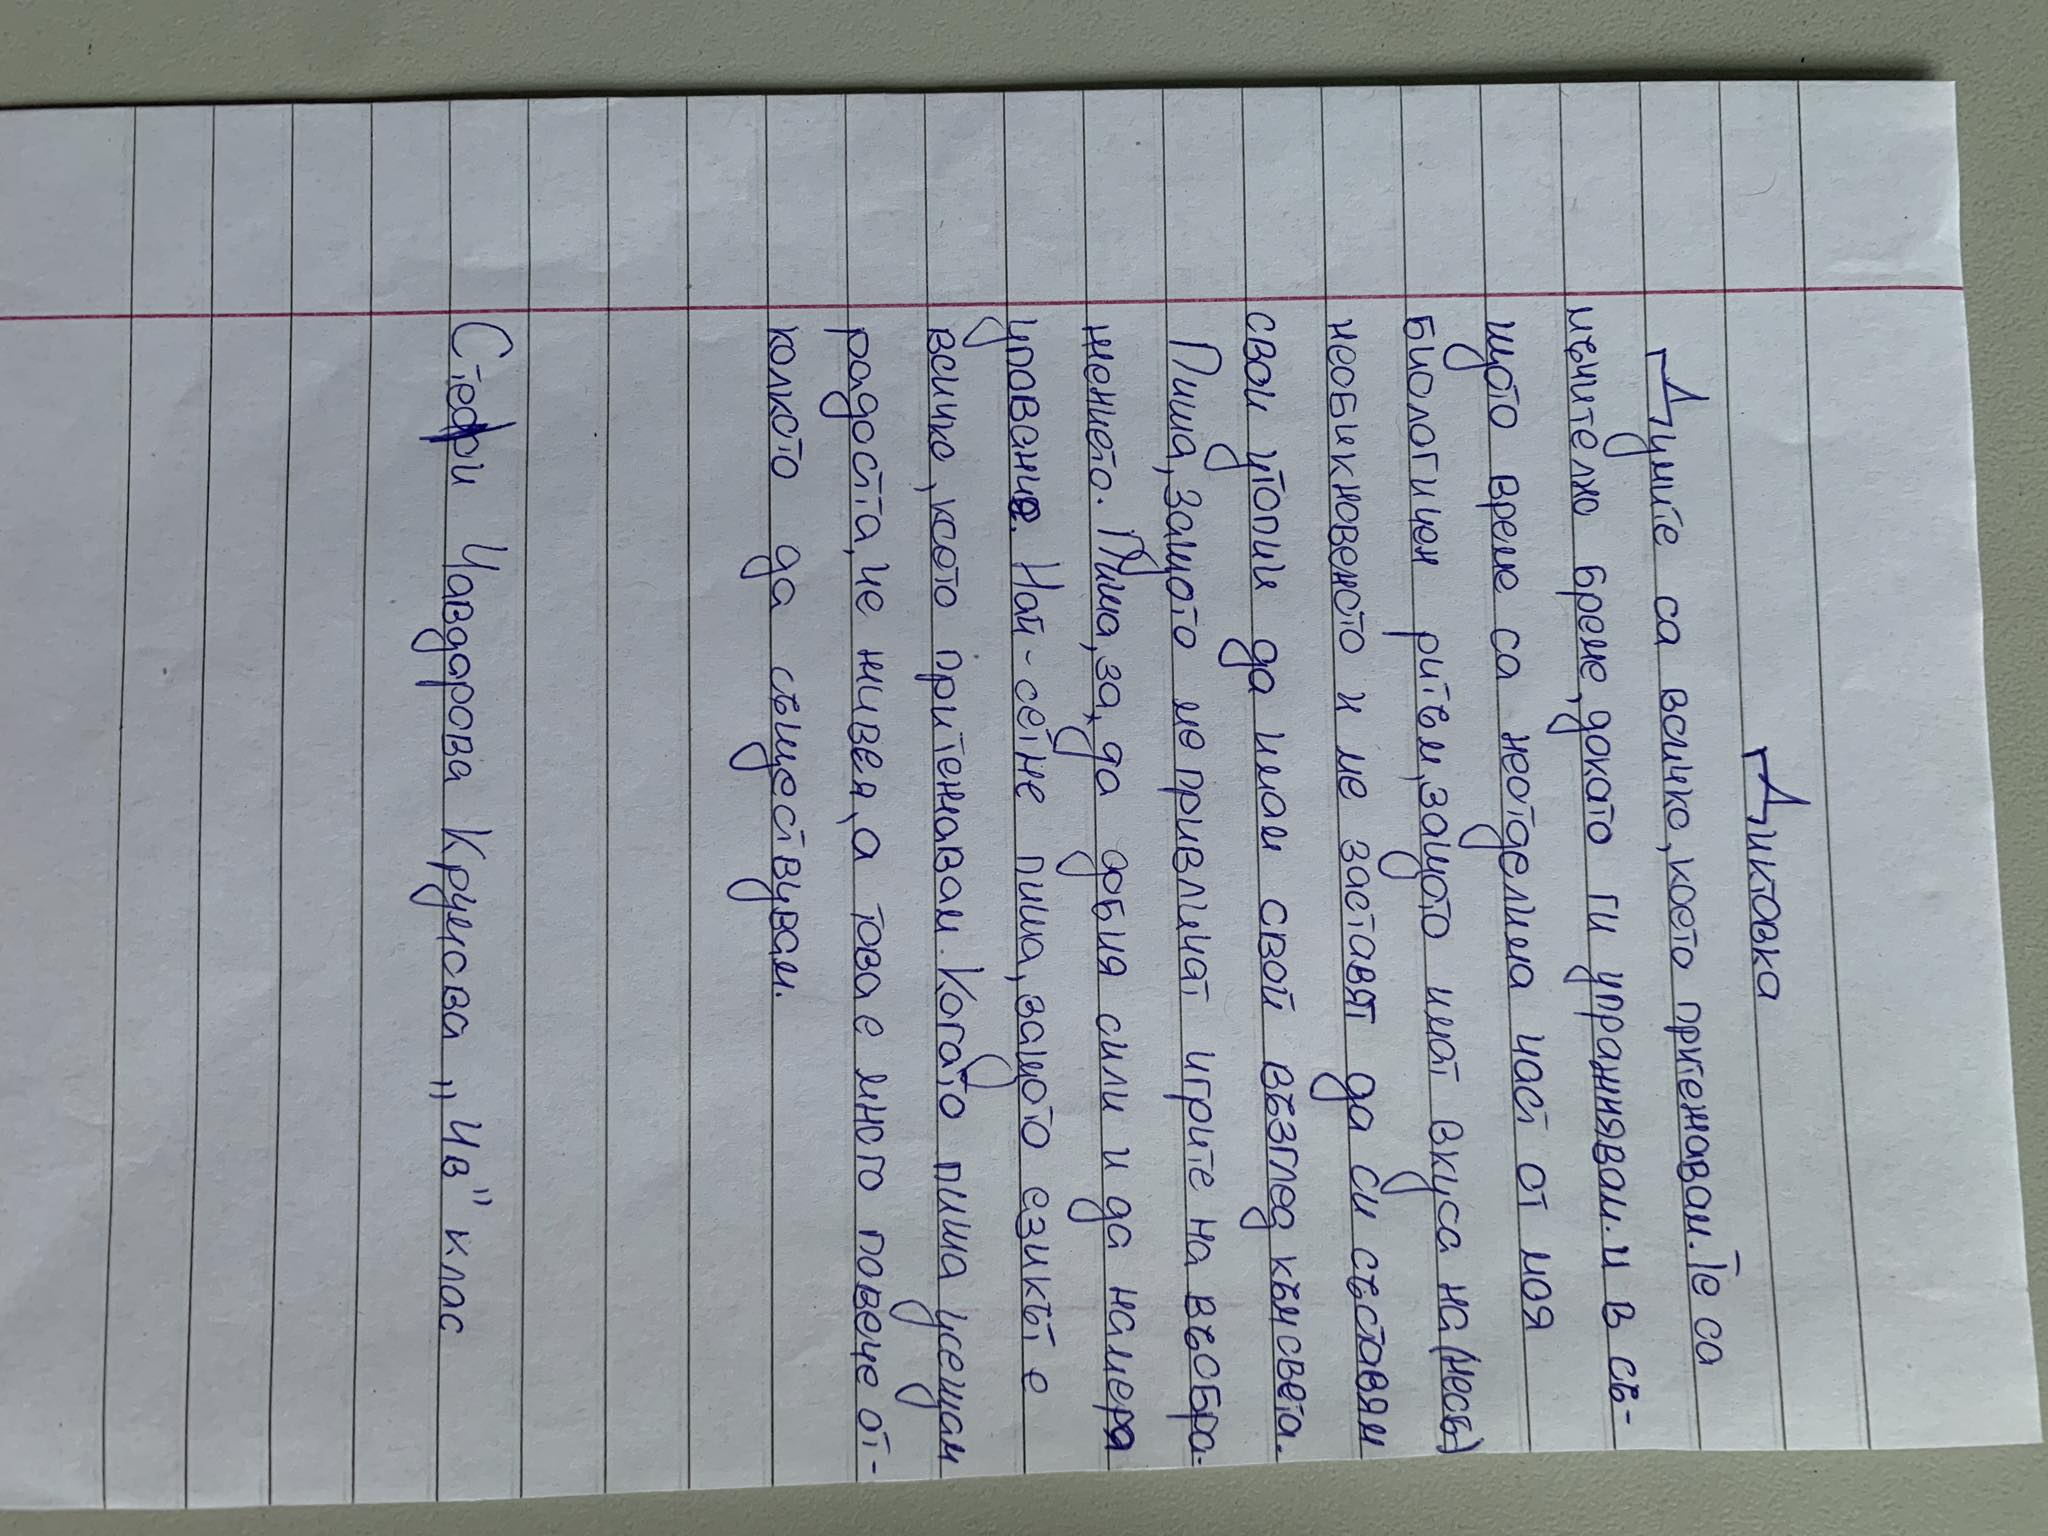 Диктовка
Думите са всичко, което притежавам. Те са
мъчително бреме, докато ги упражнявам. и в съ-
щото време са неотделима част от моя
биологичен ритъм, защото имат вкуса на
необикновеното и ме заставят да си съставям
свои утопии да имам свой възглед към света.
Пиша, защото ме привличат игрите на въобра-
жението. Пиша, за, да добия сили и да намеря
упование. Най-сетне пиша, защото езикът е
всичко, което притежавам. Когато пиша усещам
радостта, че живея, а това е много повече от-
колкото да съществувам.
Стефи Чавдарова Крумова „Iв" клас